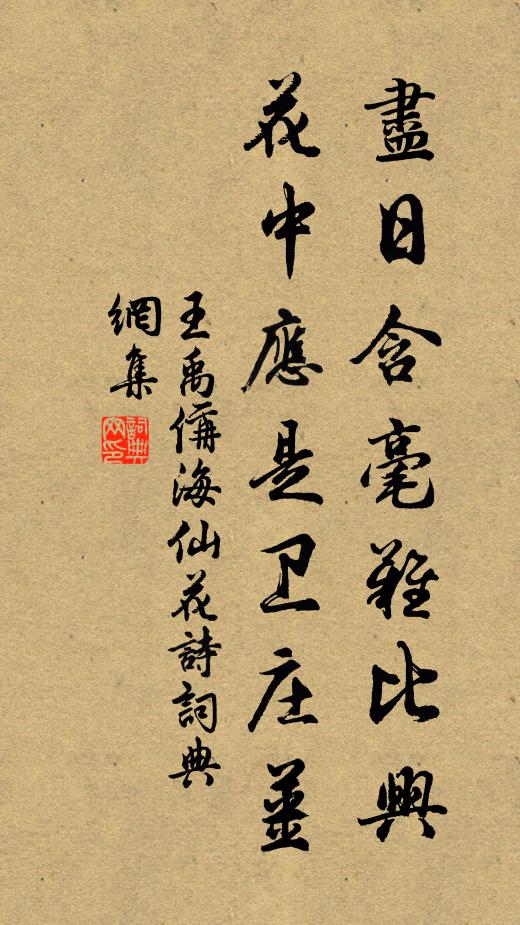 盡日含毫難比興
花中應是卫庄薑
王禹偁海仙花詩詞典
網集
詞典網印